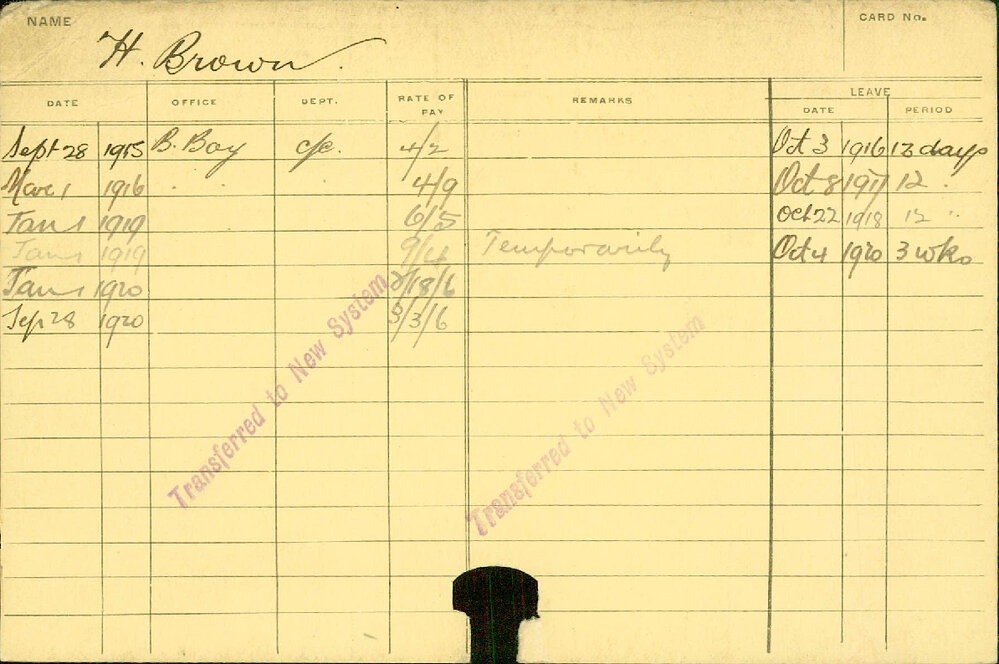 NAME
CARD No.
H. Brown.
DATE OFFICE DEPT. RATE OF PAY REMARKS LEAVE
DATE PERIOD
Sept 28 1915 B. Bay c/e. 4/2 Oct 3 1916 13 days
Mar 1 1916 " " 4/9 Oct 8 1917 12 "
Jan 1 1919 6/5 Oct 22 1918 12 "
Jan 1 1919 9/4 Temporarily Oct 4 1920 3 wks
Jan 1 1920 2/18/6
Sep 28 1920 3/3/6
Transferred to New System
Transferred to New System